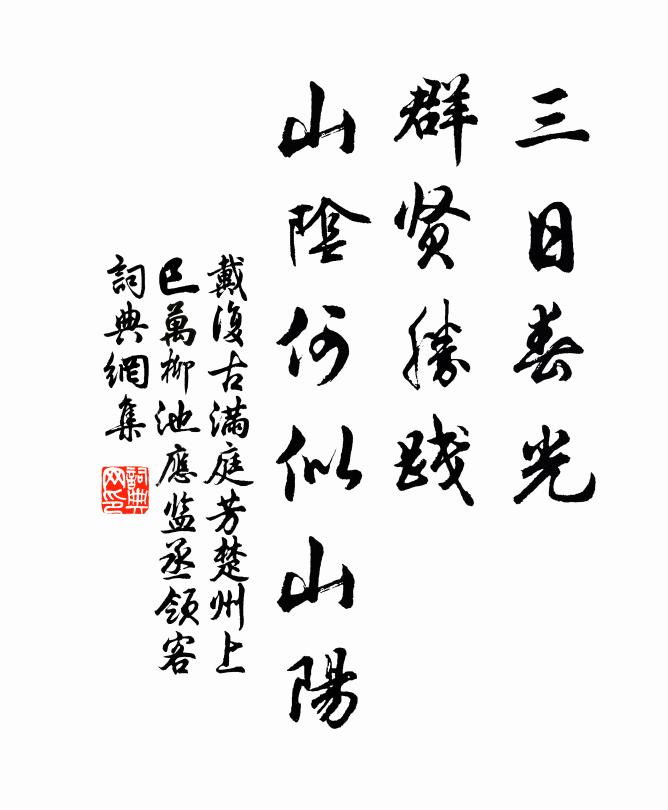 三日春光
群贤勝踐
山陰何似山陽
戴復古滿庭芳楚州上
巳萬柳池應监丞領客
詞典網集
詞典网印